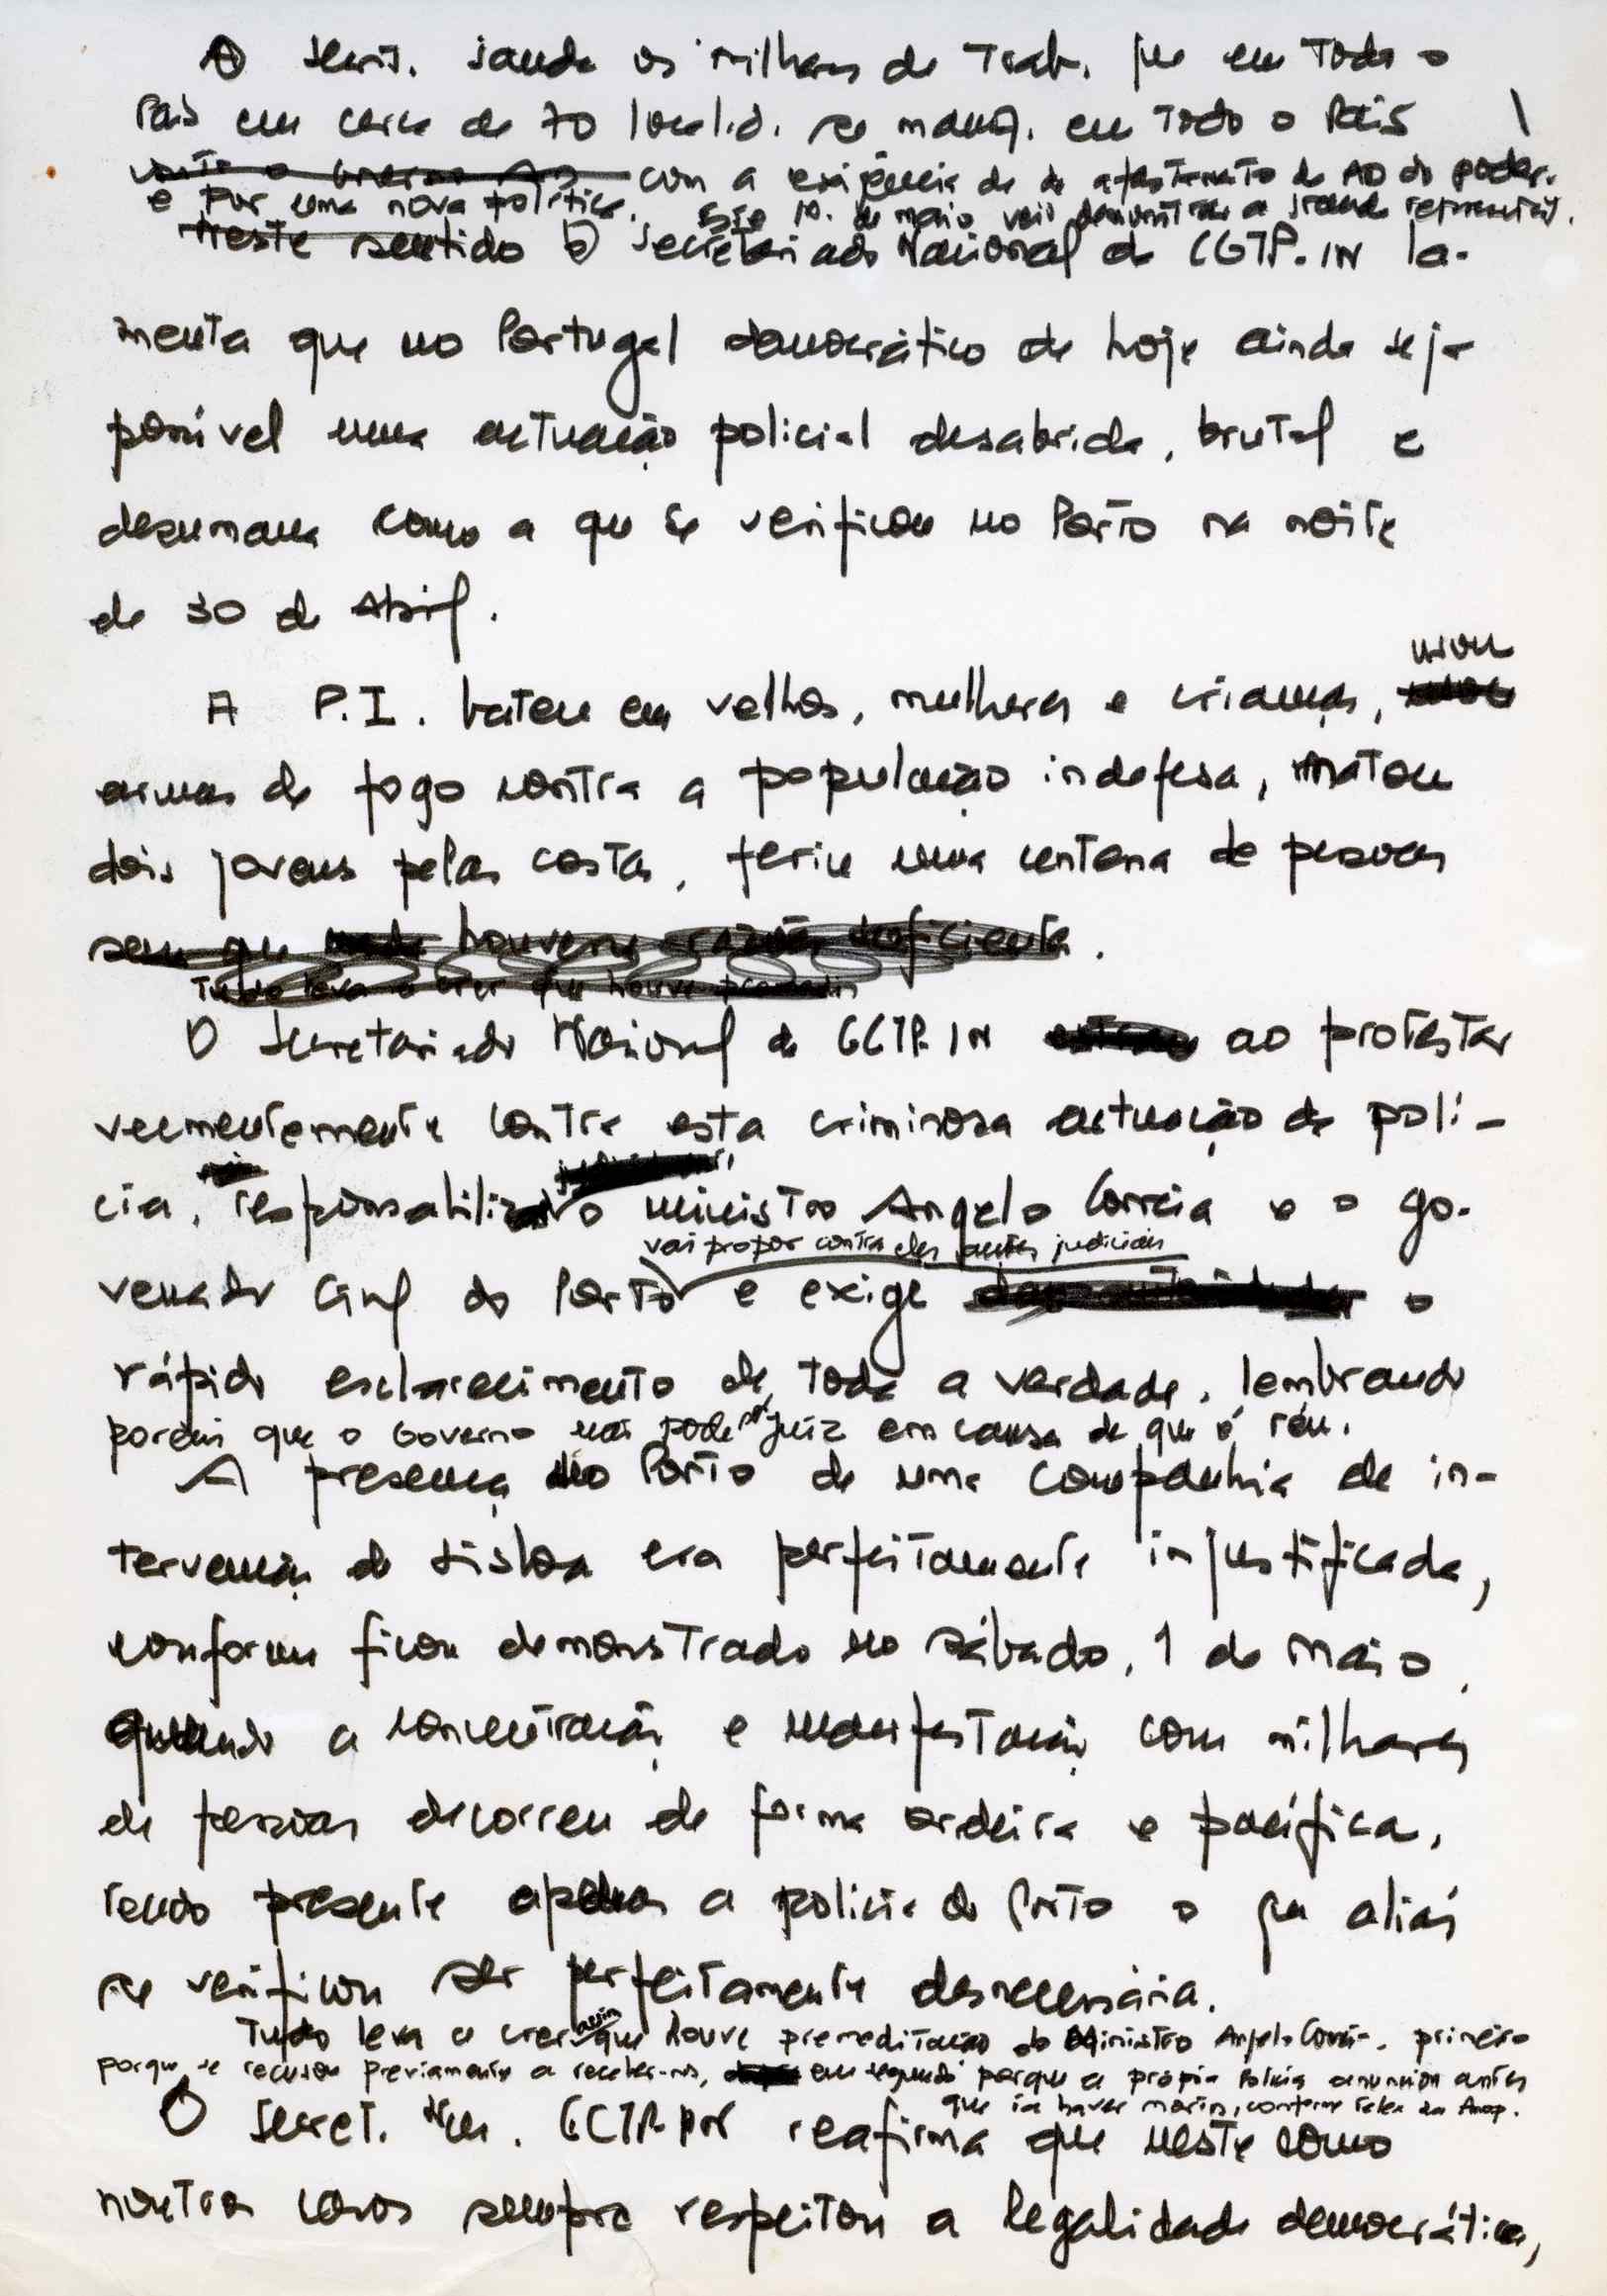 O Secret. saúda os milhares de Trab. que em todo o
País em cerca de 70 localid. se manif. em todo o País
com a exigência de de afastamento da AD do poder.
e por uma nova política. Este 1º. de maio veio demonstrar a grande representat.
neste sentido O Secretariado Nacional da CGTP-IN la-
menta que no Portugal democrático de hoje ainda seja
possível uma actuação policial desabrida, brutal e
desumana como a que se verificou no Porto na noite
de 30 de Abril.
A P.I. bateu em velhos, mulheres e crianças, usou
armas de fogo contra a população indefesa, matou
dois jovens pelas costas, feriu uma centena de pessoas
sem que houvesse razão deficiente.
Tudo leva a crer que houve
O Secretariado Nacional da CGTP-IN ao protestar
veementemente contra esta criminosa actuação da polí-
cia, responsabiliza o ministro Angelo Correia e o go-
vai propor contra eles acções judiciais
vernador Civil do Porto e exige o
rápido esclarecimento de toda a verdade, lembrando
porém que o Governo não pode ser juiz em causa de que é réu.
A presença no Porto de uma companhia de in-
tervenção de Lisboa era perfeitamente injustificada,
conforme ficou demonstrado no sábado, 1 de Maio,
quando a concentração e manifestação com milhares
de pessoas decorreu de forma ordeira e pacífica,
tendo presente apenas a polícia do Porto o que aliás
se verificou ser perfeitamente desnecessária.
Tudo leva a crer assim que houve premeditação do Ministro Angelo Correia. primeiro
porque se recusou previamente a receber-nos, em segundo porque a própria Polícia anunciou antes
que ia haver mortos, conforme telex da Anop.
O Secret. Nac. CGTP-IN reafirma que neste como
noutros casos sempre respeitou a legalidade democrática,